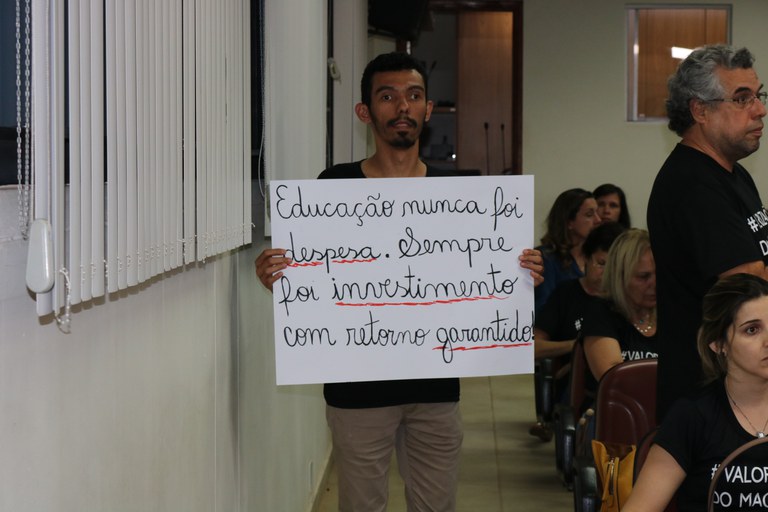 Educação nunca foi
despesa. Sempre
foi investimento
com retorno garantido!
#VALOR
DO MAG